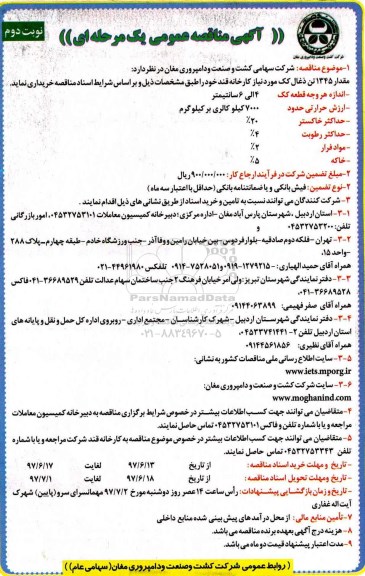 نوبت دوم
(( آگهی مناقصه عمومی یک مرحله ای ))
شرکت کشت و صنعت و دامپروری مغان
۱-موضوع مناقصه: شرکت سهامی کشت و صنعت و دامپروری مغان در نظر دارد:
مقدار ۱۳۴۵ تن ذغال کک مورد نیاز کارخانه قند خود را طبق مشخصات ذیل و بر اساس شرایط اسناد مناقصه خریداری نماید.
-اندازه هر وجه قطعه کک ۴ الی ۶ سانتیمتر
-ارزش حرارتی حدود ۷۰۰۰ کیلو کالری بر کیلوگرم
-حداکثر خاکستر ۲۰٪
-حداکثر رطوبت ۴٪
-مواد فرار ۲٪
-خاکه ۵٪
۲-مبلغ تضمین شرکت در فرآیند ارجاع کار: ۹۰۰/۰۰۰/۰۰۰ ریال
۲-نوع تضمین: فیش بانکی و یا ضمانتنامه بانکی (حداقل با اعتبار سه ماه)
۳-شرکت کنندگان می توانند نسبت به تامین و خرید اسناد از طریق نشانی های ذیل اقدام نمایند.
۳-۱- استان اردبیل -شهرستان پارس آباد مغان -اداره مرکزی: دبیرخانه کمیسیون معاملات ۰۴۵۳۲۷۵۳۱۰۱، امور بازرگانی
تلفن: ۰۴۵۳۲۷۵۳۲۰۰ و
۳-۲- تهران -فلکه دوم صادقیه -بلوار فردوس -بین خیابان رامین و وفا آذر -جنب ورزشگاه خادم -طبقه چهارم -پلاک ۲۸۸
-واحد ۱۵،
همراه آقای حمید الهیاری: ۰۹۱۹-۱۲۷۹۲۱۵-۰۹۱۴-۷۵۲۸۰۵۱ تلفکس ۰۲۱-۴۴۹۶۱۹۸۰
۳-۳- دفتر نمایندگی شهرستان تبریز: ولی امر خیابان فرهنگ ۲ جنب ساختمان سهام عدالت تلفن ۰۴۱-۳۶۶۸۹۵۲۹ فاکس
۰۴۱-۳۶۶۸۹۵۲۸
همراه آقای صفر فهیمی: ۰۹۱۴۴۰۶۳۸۹۹
۳-۴- دفتر نمایندگی شهرستان اردبیل -شهرک کارشناسان -مجتمع اداری -روبروی اداره کل حمل و نقل و پایانه های
استان اردبیل تلفن ۲-۰۴۵۳۳۷۴۱۴۴۱
همراه آقای نظیری: ۰۹۱۴۴۵۶۱۸۵۶
ParsNamadData
۰۲۱-۸۸۳۴۹۶۷۰-۵
۳-۵- سایت اطلاع رسانی ملی مناقصات کشور به نشانی:
www.iets.mporg.ir
۳-۶- سایت شرکت کشت و صنعت و دامپروری مغان:
www.moghanind.com
۴-متقاضیان می توانند جهت کسب اطلاعات بیشتر در خصوص شرایط برگزاری مناقصه به دبیرخانه کمیسیون معاملات
مراجعه و یا با شماره تلفن و فاکس ۰۴۵۳۲۷۵۳۱۰۱ تماس حاصل نمایند.
۵-متقاضیان می توانند جهت کسب اطلاعات بیشتر در خصوص موضوع مناقصه به کارخانه قند شرکت مراجعه و یا با شماره
تلفن ۰۴۵۳۲۷۵۳۳۴۳ تماس حاصل نمایند.
-تاریخ و مهلت خرید اسناد مناقصه: از تاریخ ۹۷/۶/۱۳ لغایت ۹۷/۶/۱۷
-تاریخ و مهلت تحویل اسناد مناقصه: از تاریخ ۹۷/۶/۱۸ لغایت ۹۷/۷/۱
-تاریخ و زمان بازگشایی پیشنهادات: رأس ساعت ۱۴ عصر روز دوشنبه مورخ ۹۷/۷/۲ مهمانسرای سرو (پایین) شهرک
آیت اله غفاری
۷-تأمین منابع مالی: از محل درآمدهای پیش بینی شده منابع داخلی
۸-هزینه درج آگهی بعهده برنده مناقصه می باشد.
۹-مدت اعتبار پیشنهاد قیمت دو ماه می باشد.
( روابط عمومی شرکت کشت و صنعت و دامپروری مغان (سهامی عام) )